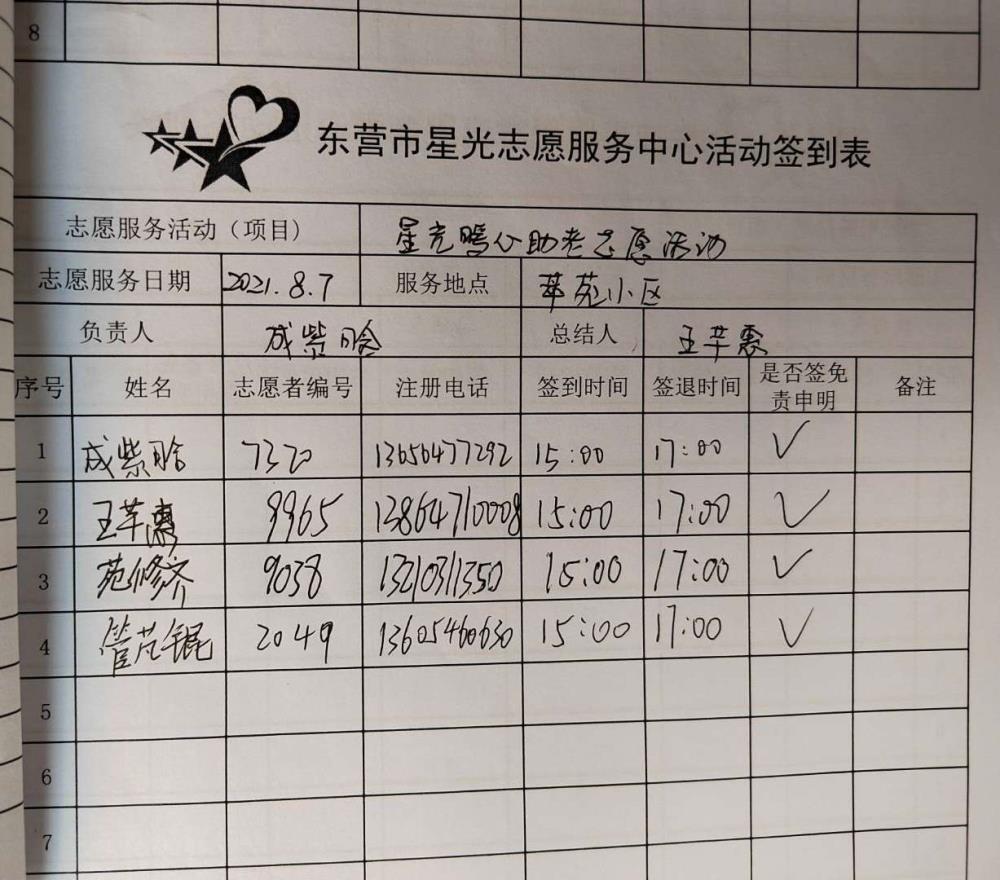 8
东营市星光志愿服务中心活动签到表
志愿服务活动（项目） 星光暖心助老志愿活动
志愿服务日期 2021.8.7 服务地点 莘苑小区
负责人 成紫晗 总结人 王芊惠
序号 姓名 志愿者编号 注册电话 签到时间 签退时间 是否签免责申明 备注
1 成紫晗 7320 13656477292 15:00 17:00 ✓
2 王芊惠 9965 13864710008 15:00 17:00 ✓
3 苑修齐 9038 13210311350 15:00 17:00 ✓
4 管芃锟 2049 13605460630 15:00 17:00 ✓
5
6
7